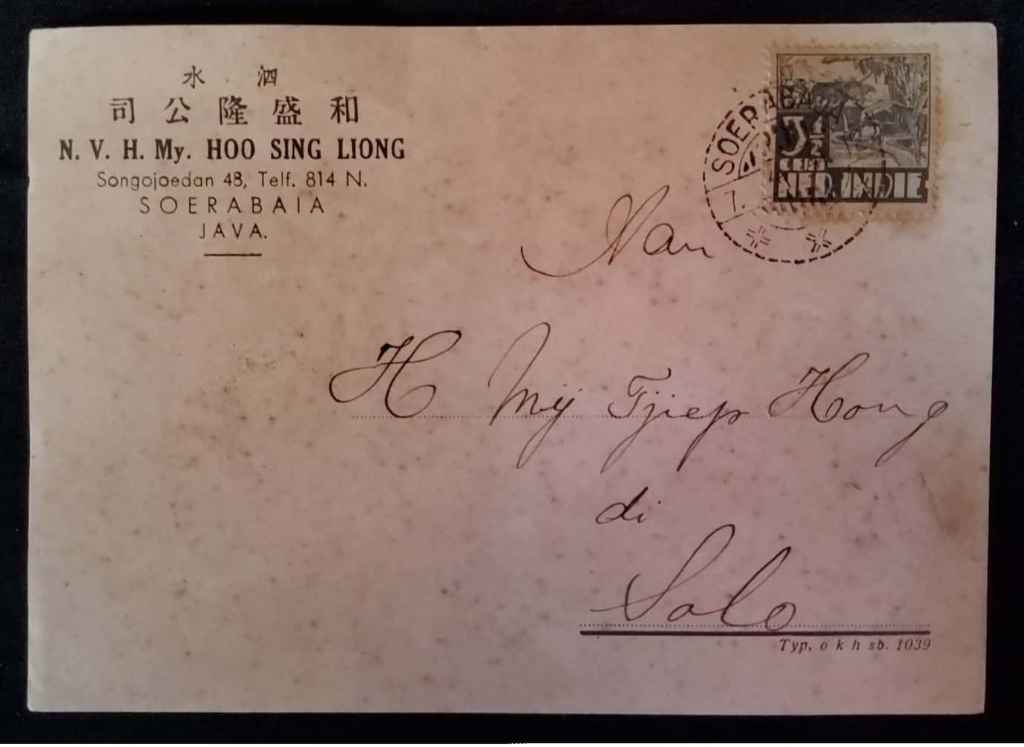 水 泗
司公隆盛和
N. V. H. My. HOO SING LIONG
Songojoedan 48, Telf. 814 N.
SOERABAIA
JAVA.
SOERABA
7.
3½
CENT
NED. INDIE
Nan
H Mij Tjiep Hong
di
Solo
Typ. o k h sb. 1039